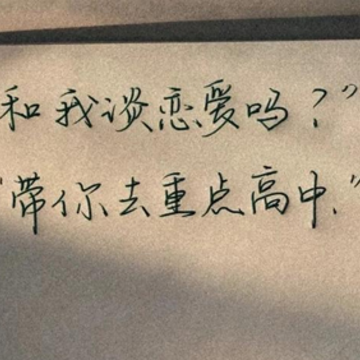 和我谈恋爱吗？”
“带你去重点高中.”